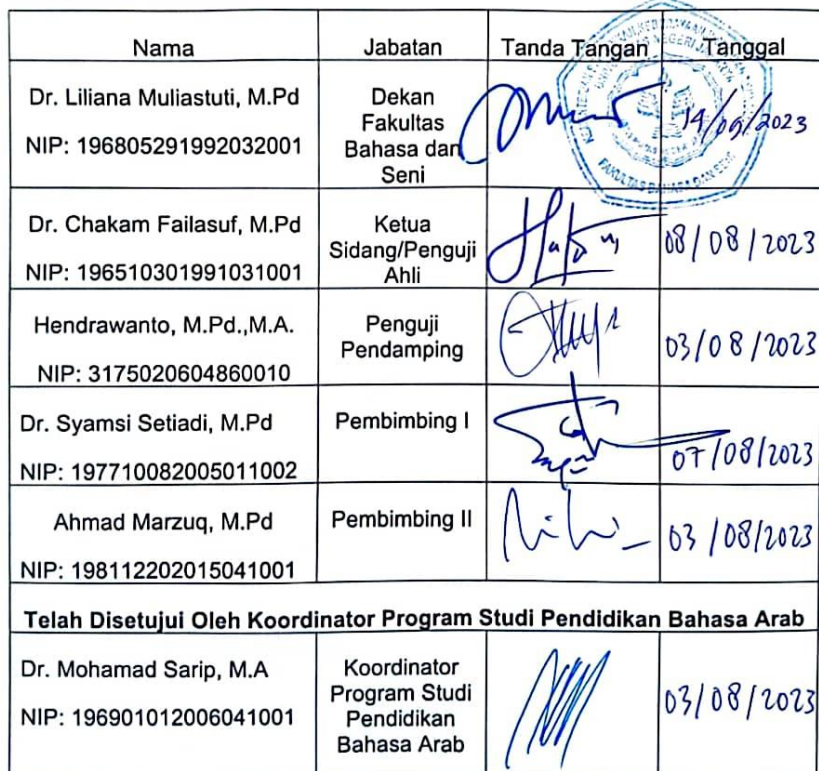 Nama Jabatan Tanda Tangan Tanggal
Dr. Liliana Muliastuti, M.Pd
NIP: 196805291992032001
Dekan
Fakultas
Bahasa dan
Seni
14/09/2023
FAKULTAS BAHASA DAN SENI
Dr. Chakam Failasuf, M.Pd
NIP: 196510301991031001
Ketua
Sidang/Penguji
Ahli
08/08/2023
Hendrawanto, M.Pd.,M.A.
NIP: 3175020604860010
Penguji
Pendamping
03/08/2023
Dr. Syamsi Setiadi, M.Pd
NIP: 197710082005011002
Pembimbing I
07/08/2023
Ahmad Marzuq, M.Pd
NIP: 198112202015041001
Pembimbing II
03/08/2023
Telah Disetujui Oleh Koordinator Program Studi Pendidikan Bahasa Arab
Dr. Mohamad Sarip, M.A
NIP: 196901012006041001
Koordinator
Program Studi
Pendidikan
Bahasa Arab
03/08/2023